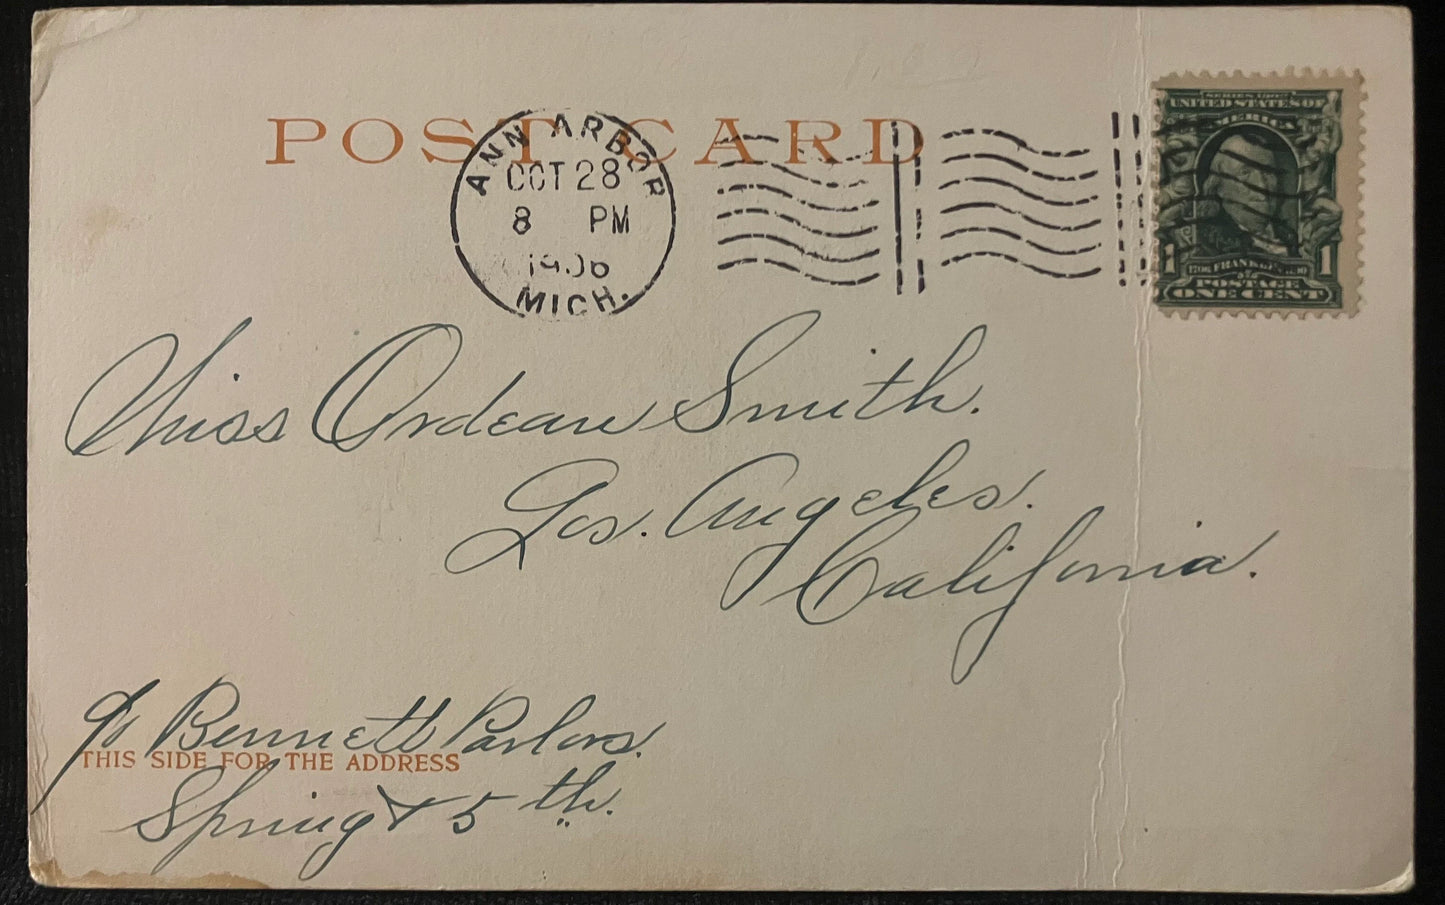 POST CARD
ANN ARBOR
OCT 28
8 PM
1906
MICH.
SERIES 1902
UNITED STATES OF
AMERICA
1 1706 FRANKLIN 1790 1
POSTAGE
ONE CENT
Miss Ordean Smith.
Los. Angeles.
California.
c/o Bennett Parlors.
THIS SIDE FOR THE ADDRESS
Spring & 5th.